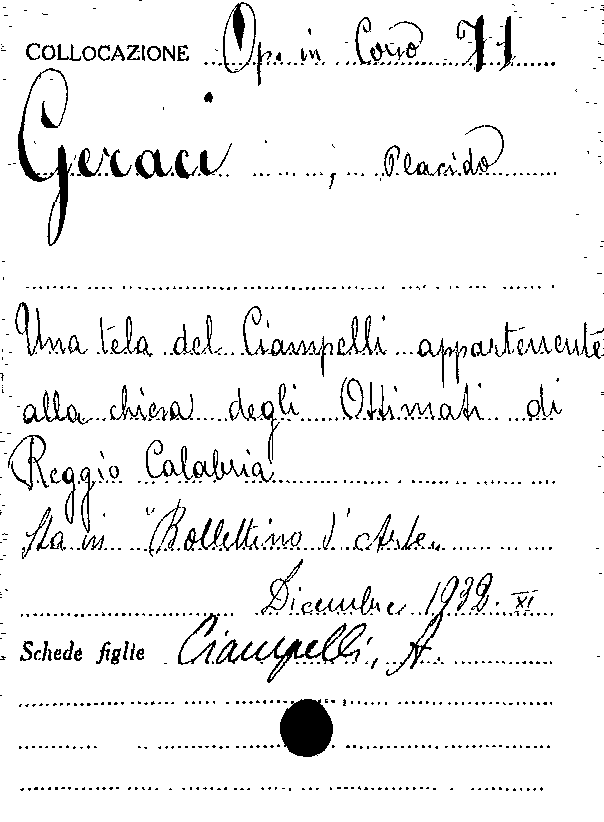 COLLOCAZIONE Op. in Corso 71
Geraci , Placido
Una tela del Ciampelli appartenente
alla chiesa degli Ottimati di
Reggio Calabria
Sta in "Bollettino d'Arte„
Dicembre 1932. XI
Schede figlie Ciampelli, A.